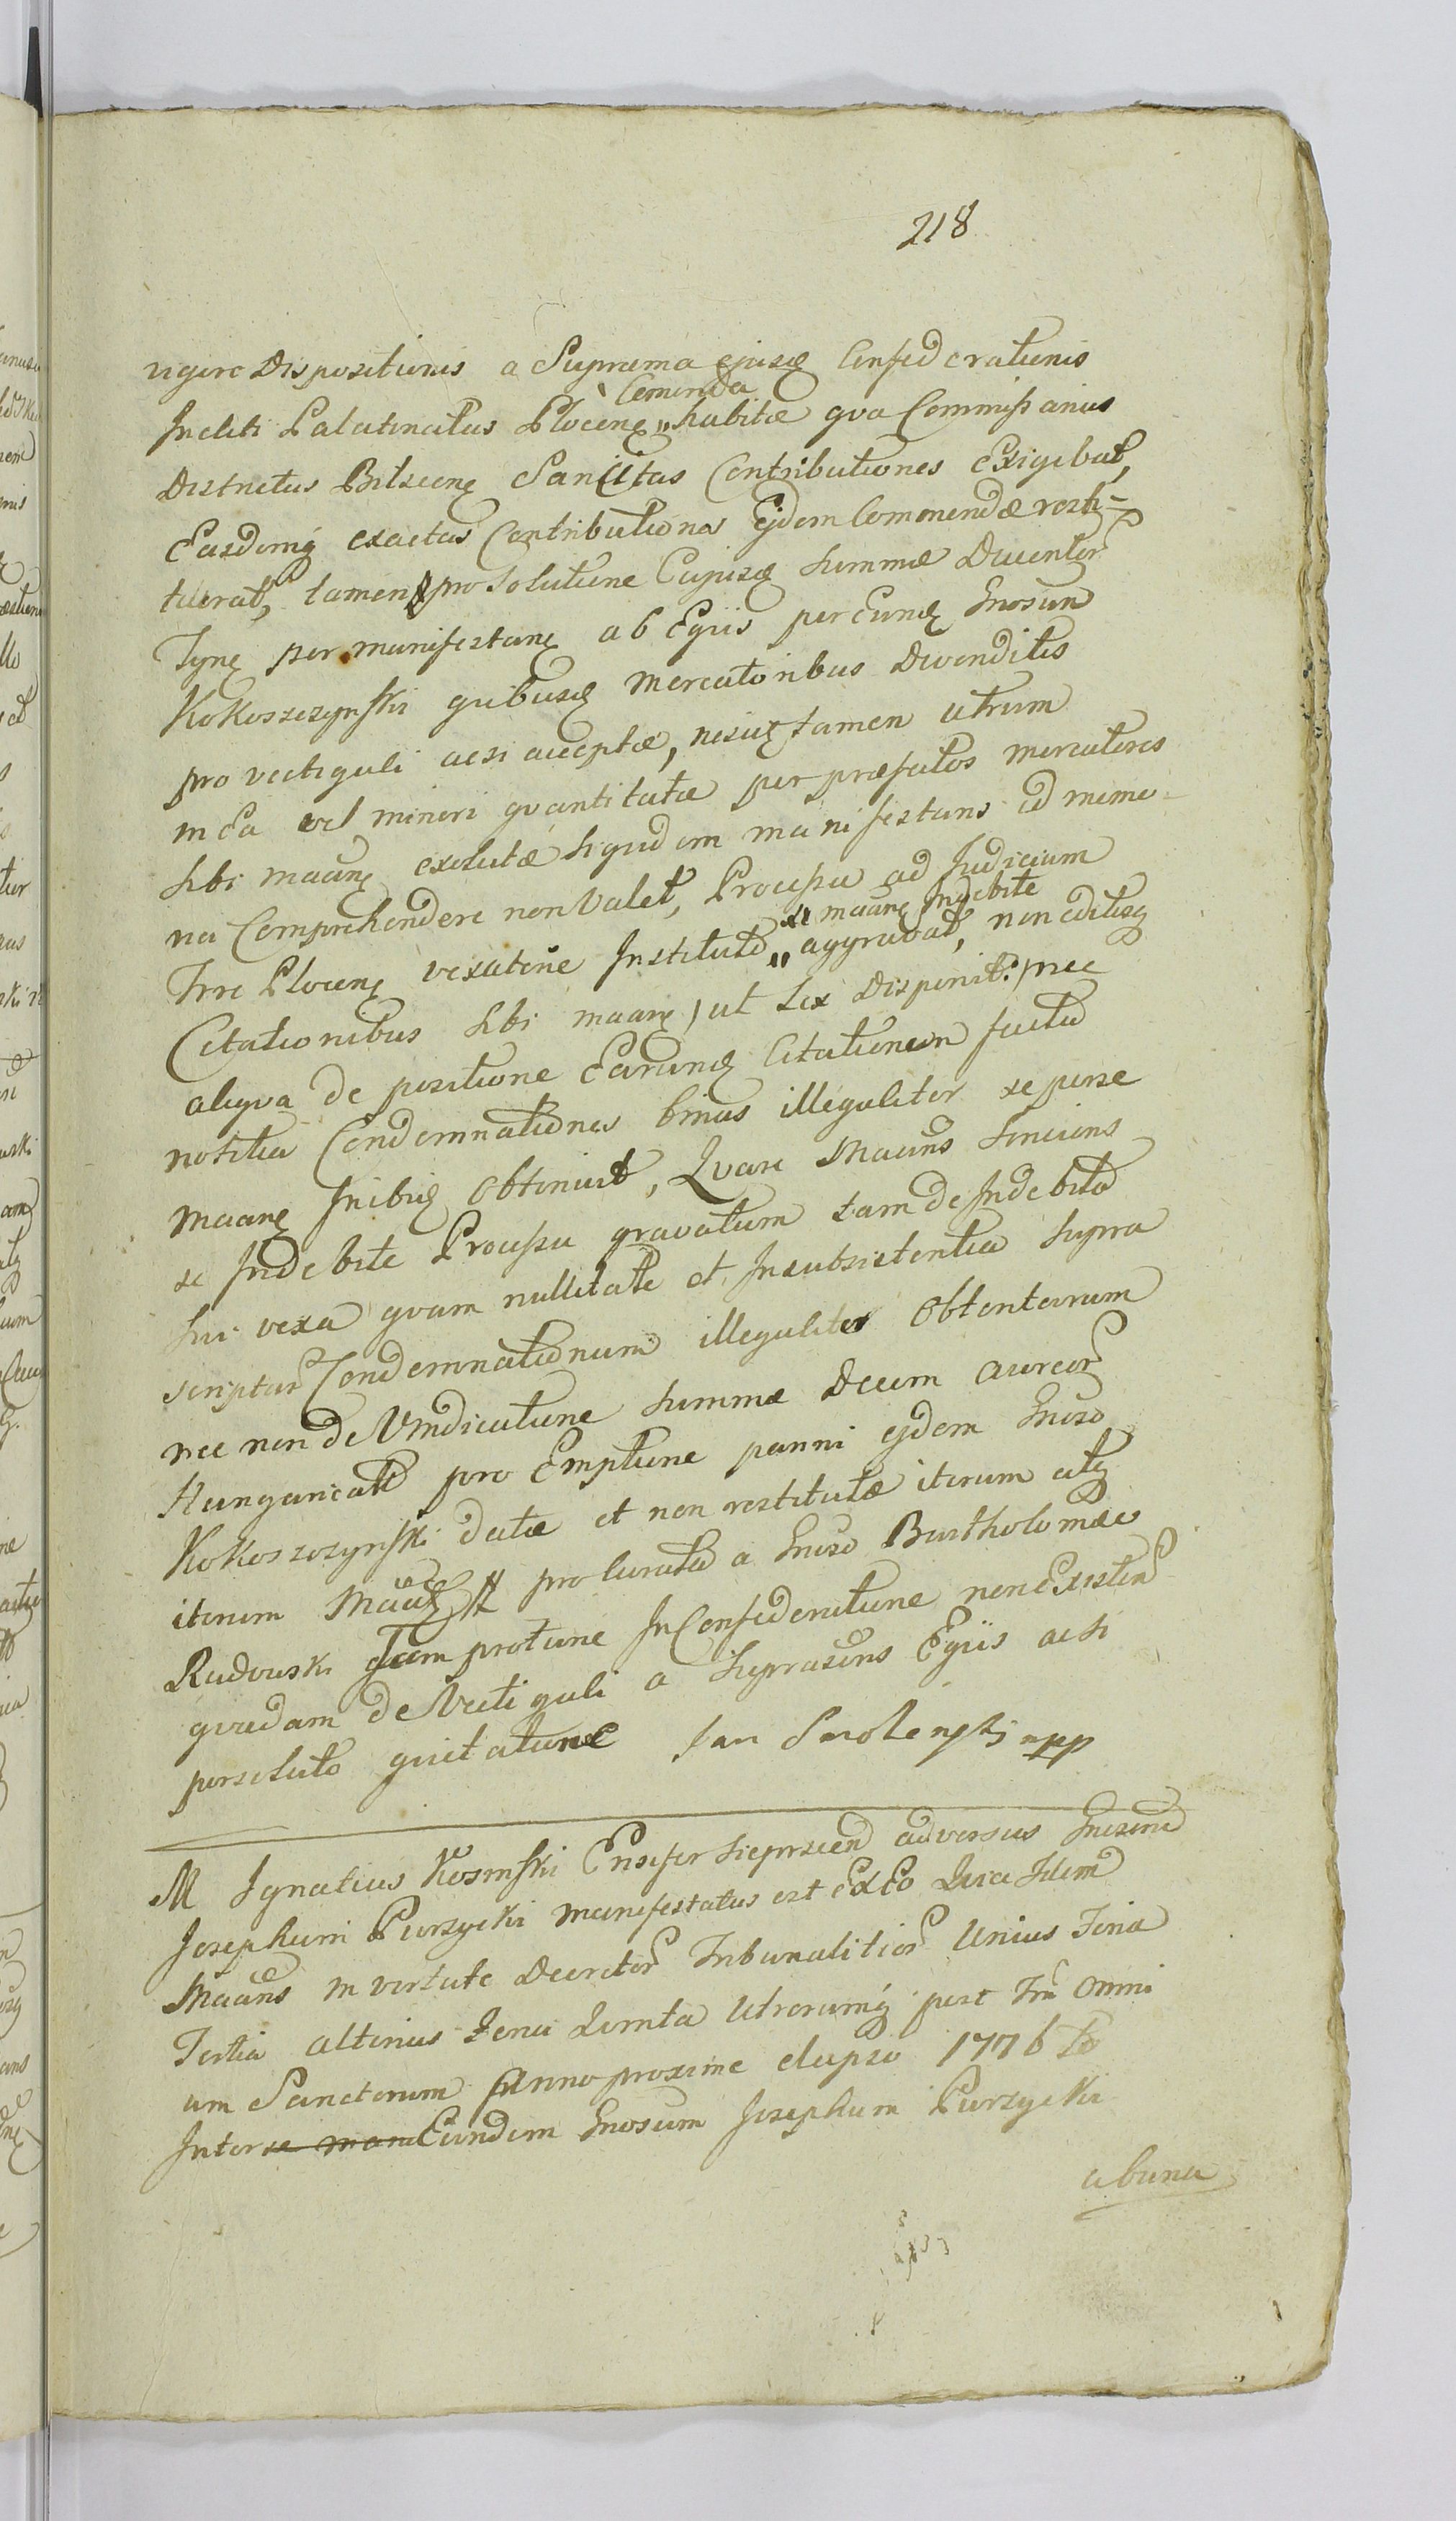 218
vigore Dispositionis a Suprema ejusq Confederationis
Comenda
Incliti Palatinatus Plocenę „ habitæ qva Commissarius
Districtus Bilscenę Sancitas Contributiones Exigebat,
Easdemq exactas Contributiones Ejdem Commendæ resti-
tuerat, tamen pro Solutione Cujusq Summæ Ducentor
Tynę per manifestanę ab Eqiis per Eunq Gnosum
Kokoszczynski qvibusq mercatoribus Divenditis
pro vectigali acsi acceptæ, nesiuę tamen utrum
in Ea vel minori qvantitate per præfatos mercatores
sibi maanę exolutæ siqvidem manifestans id memo-
ria Comprehendere non Valet, Processu ad Judicium
maanę Indebite
Trre Plocenę vexatione Institutô „ aggravat, non editisq
Citationibus sibi maanę / ut Lex Disponit: / nec
aliqva de positione Earunq Citationum facta
notitia Condemnationes binas illegaliter se perse
maanę Inibiq Obtinuit, Qvare Maans Senciens
se Indebite Processu gravatum tam de Indebita
sui vexa qvam nullitate et Insubsistentia supra
scriptar Condemnationum illegaliter Obtentarum
nec non de Vindicatione Summæ Decem Aureor
Hungaricali pro Emptione panni ejdem Gnoso
Kokoszczynski datæ et non restitutæ iterum atq
iterum procurata a Gnoso Bartholomæo
Rudowski Jam protunc In Confederatione non Existen
qvadam de Vectigali a Suprascns Eqiis acsi
persoluto qvietatione Jan Smolenski mpp
M Ignatius Kosinski Ensifer Sieprscen adversus Gnosum
Josephum Purzycki manifestatus est Ex Eo Qvia Idem
Maans in virtute Decretor Tribunalitior Unius Feria
Tertia alterius Feria Qvinta Utrorumq post Frm Omni
um Sanctorum Anno proxime elapso 1776 to
Inter se man Eundem Gnosum Josephum Purzycki
ab una